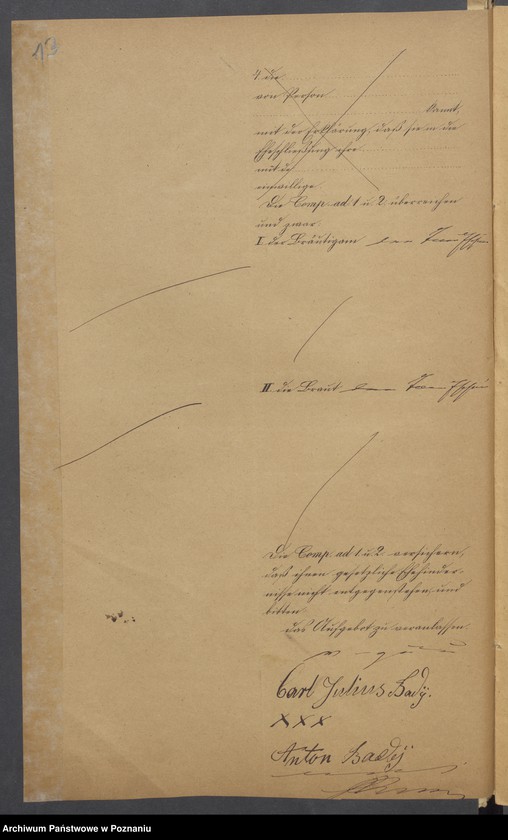 13
4. die
von Person
kannt,
mit der Erklärung, daß sie in die
Eheschließung ihre
mit de
einwillige.
Die Comp. ad 1 u. 2. überreichen
und zwar:
I. der Bräutigam den Taufschein
II. die Braut den Taufschein
Die Comp. ad 1. u. 2. versichern,
daß ihnen gesetzliche Ehehinder-
nisse nicht entgegenstehen, und
bitten
das Aufgebot zu veranlassen.
Carl Julius Bady.
XXX
Anton Baedÿ
Archiwum Państwowe w Poznaniu